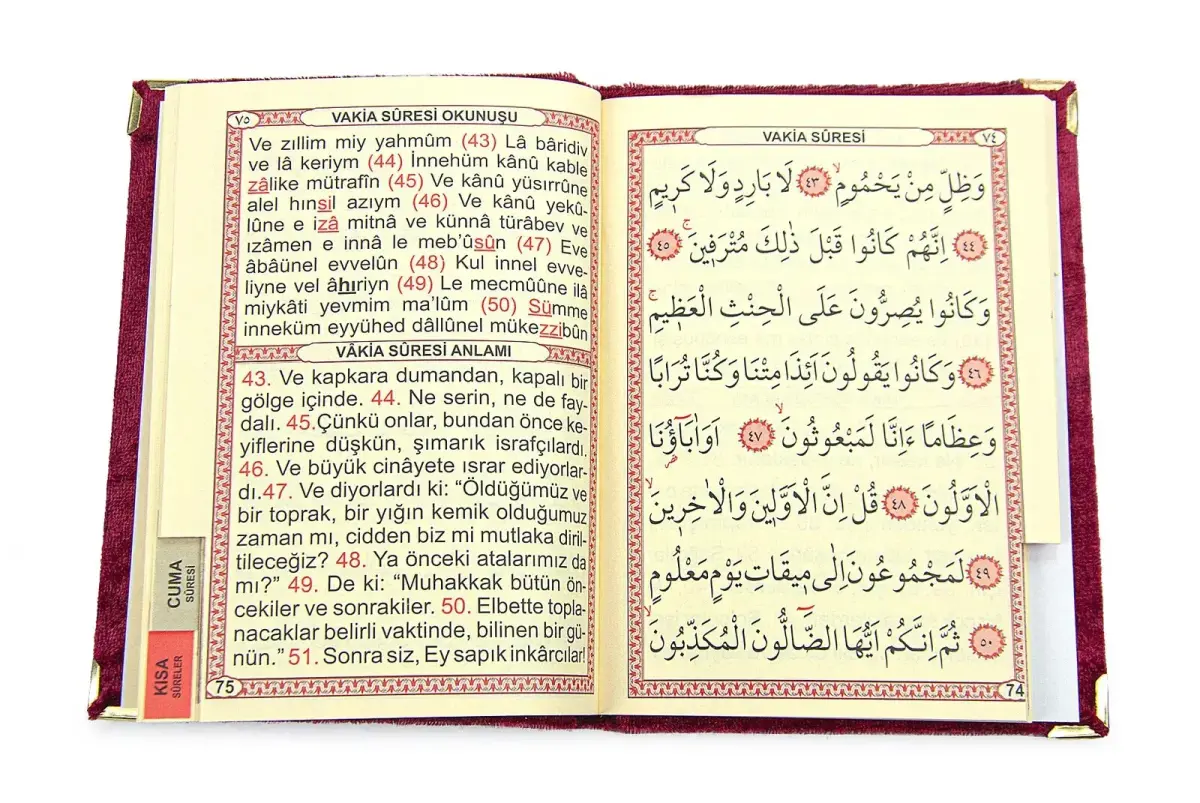 ٧٥
VAKİA SÛRESİ OKUNUŞU
Ve zıllim miy yahmûm (43) Lâ bâridiv
ve lâ keriym (44) İnnehüm kânû kable
zâlike mütrafîn (45) Ve kânû yüsırrûne
alel hınsil azıym (46) Ve kânû yekû-
lûne e izâ mitnâ ve künnâ türâbev ve
ızâmen e innâ le meb’ûsûn (47) Eve
âbâünel evvelûn (48) Kul innel evve-
liyne vel âhıriyn (49) Le mecmûûne ilâ
miykâti yevmim ma’lûm (50) Sümme
inneküm eyyühed dâllûnel mükezzibûn
VÂKİA SÛRESİ ANLAMI
43. Ve kapkara dumandan, kapalı bir
gölge içinde. 44. Ne serin, ne de fay-
dalı. 45.Çünkü onlar, bundan önce ke-
yiflerine düşkün, şımarık israfçılardı.
46. Ve büyük cinâyete ısrar ediyorlar-
dı.47. Ve diyorlardı ki: “Öldüğümüz ve
bir toprak, bir yığın kemik olduğumuz
zaman mı, cidden biz mi mutlaka diril-
tileceğiz? 48. Ya önceki atalarımız da
mı?” 49. De ki: “Muhakkak bütün ön-
cekiler ve sonrakiler. 50. Elbette topla-
nacaklar belirli vaktinde, bilinen bir gü-
nün.” 51. Sonra siz, Ey sapık inkârcılar!
75
CUMA
SÛRESİ
KISA
SÛRELER
VAKİA SÛRESİ
٧٤
وَظِلٍّ مِنْ يَحْمُومٍۙ ٤٣ لَا بَارِدٍ وَلَا كَر۪يمٍ
٤٤ اِنَّهُمْ كَانُوا قَبْلَ ذٰلِكَ مُتْرَف۪ينَۚ ٤٥
وَكَانُوا يُصِرُّونَ عَلَى الْحِنْثِ الْعَظ۪يمِۚ
٤٦ وَكَانُوا يَقُولُونَ اَئِذَا مِتْنَا وَكُنَّا تُرَابًا
وَعِظَامًا ءَاِنَّا لَمَبْعُوثُونَۙ ٤٧ اَوَاٰبَٓاؤُ۬نَا
الْاَوَّلُونَ ٤٨ قُلْ اِنَّ الْاَوَّل۪ينَ وَالْاٰخِر۪ينَۙ
٤٩ لَمَجْمُوعُونَ اِلٰى م۪يقَاتِ يَوْمٍ مَعْلُومٍ
٥٠ ثُمَّ اِنَّكُمْ اَيُّهَا الضَّٓالُّونَ الْمُكَذِّبُونَۙ
74